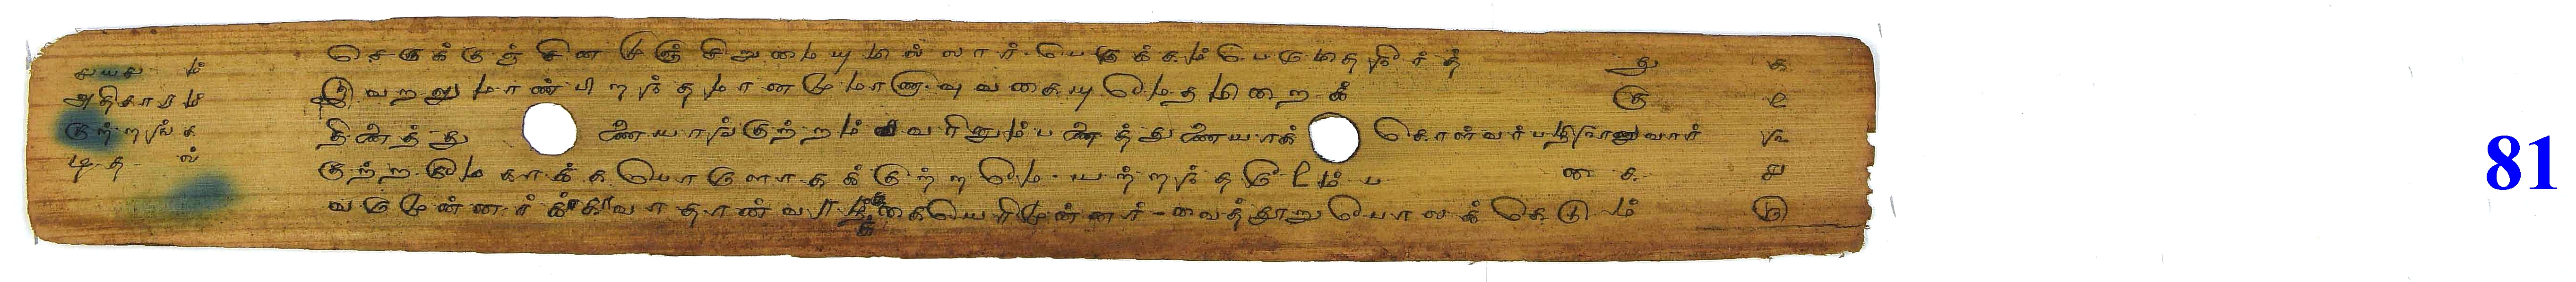 ௪௰௪ ம்
அதிகாரம்
குற்றங்க
டித ல்
செருக்குந் சினமுஞ் சிறுமையுமில்லார் பெருக்கம் பெருமிதநீர்த் து ௧
இவறலுமாண்பிறந்தமானமுமாணாவுவகையு மேதமிறைக் கு ௨
தினைத்து ணையாங்குற்றம் வரினும்பனைத்துணையாக் கொள்வர்பழிநாணுவார் ௩
குற்றமேகாக்கபொருளாகக்குற்றமே யற்றந்தரூஉம்ப கை ௪
வருமுன்னர்க்காவாதான்வாழ்க்கையெரிமுன்னர் வைத்தூறுபோலக் கெடு ம் ௫
81